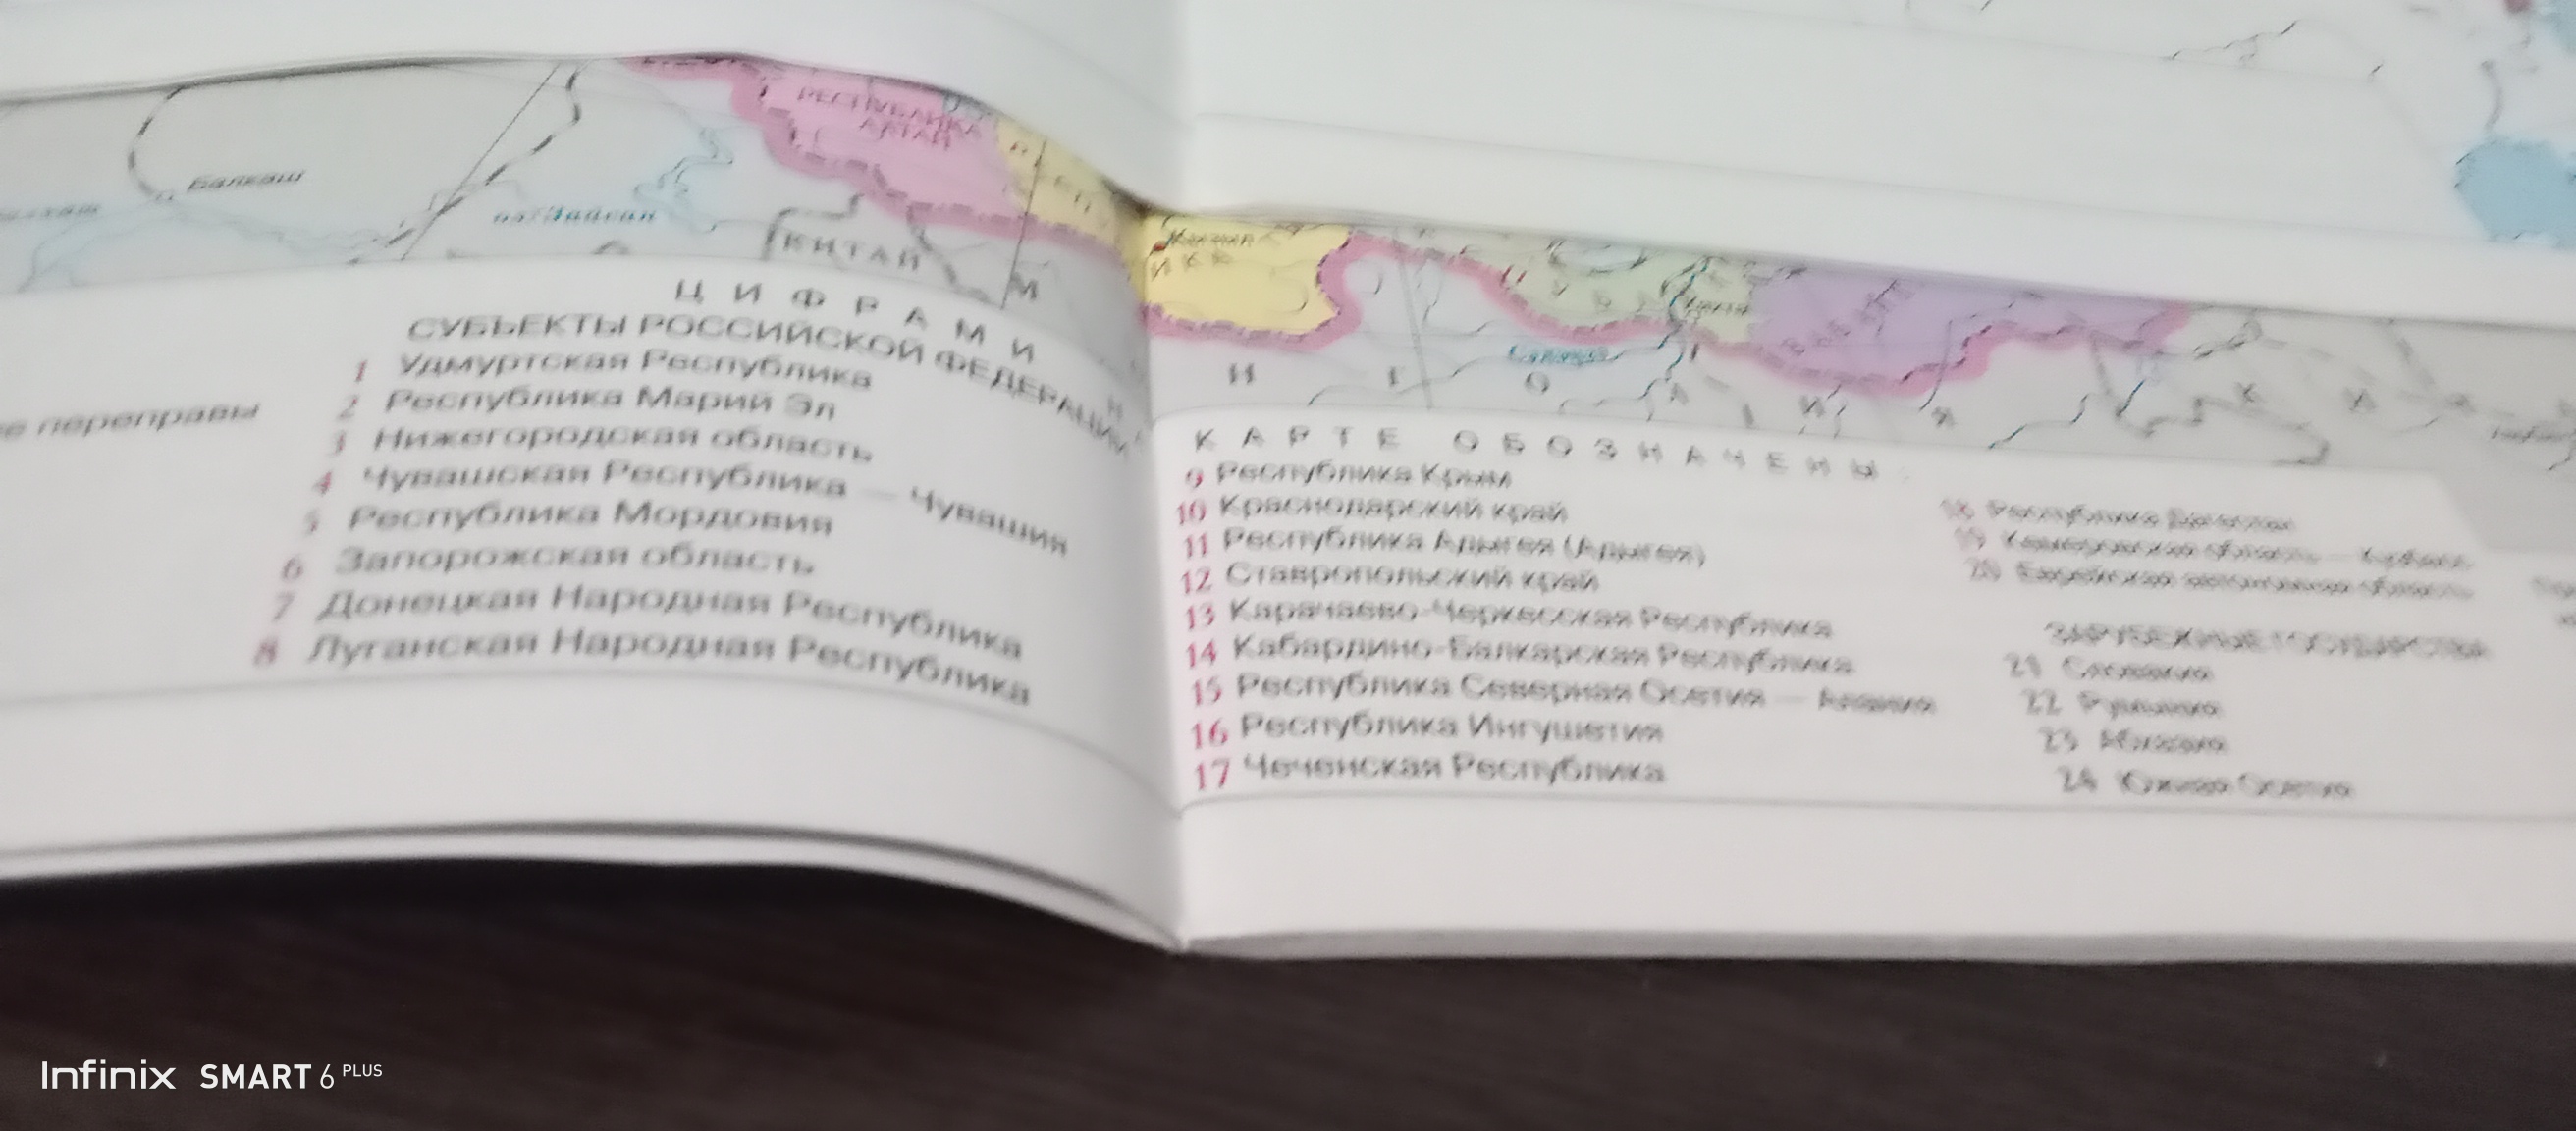 РЕСПУБЛИКА
АЛТАЙ
Балкаш
оз. Зайсан
КИТАЙ
М
Кызыл
Н Г О Л И Я
ЦИФРАМИ НА
СУБЪЕКТЫ РОССИЙСКОЙ ФЕДЕРАЦИИ
1 Удмуртская Республика
2 Республика Марий Эл
3 Нижегородская область
4 Чувашская Республика — Чувашия
5 Республика Мордовия
6 Запорожская область
7 Донецкая Народная Республика
8 Луганская Народная Республика
переправы
КАРТЕ ОБОЗНАЧЕНЫ
9 Республика Крым
10 Краснодарский край
11 Республика Адыгея (Адыгея)
12 Ставропольский край
13 Карачаево-Черкесская Республика
14 Кабардино-Балкарская Республика
15 Республика Северная Осетия — Алания
16 Республика Ингушетия
17 Чеченская Республика
18 Республика Дагестан
19 Кемеровская область — Кузбасс
20 Еврейская автономная область
ЗАРУБЕЖНЫЕ ГОСУДАРСТВА
21 Словения
22 Румыния
23 Абхазия
24 Южная Осетия
Infinix SMART 6 PLUS